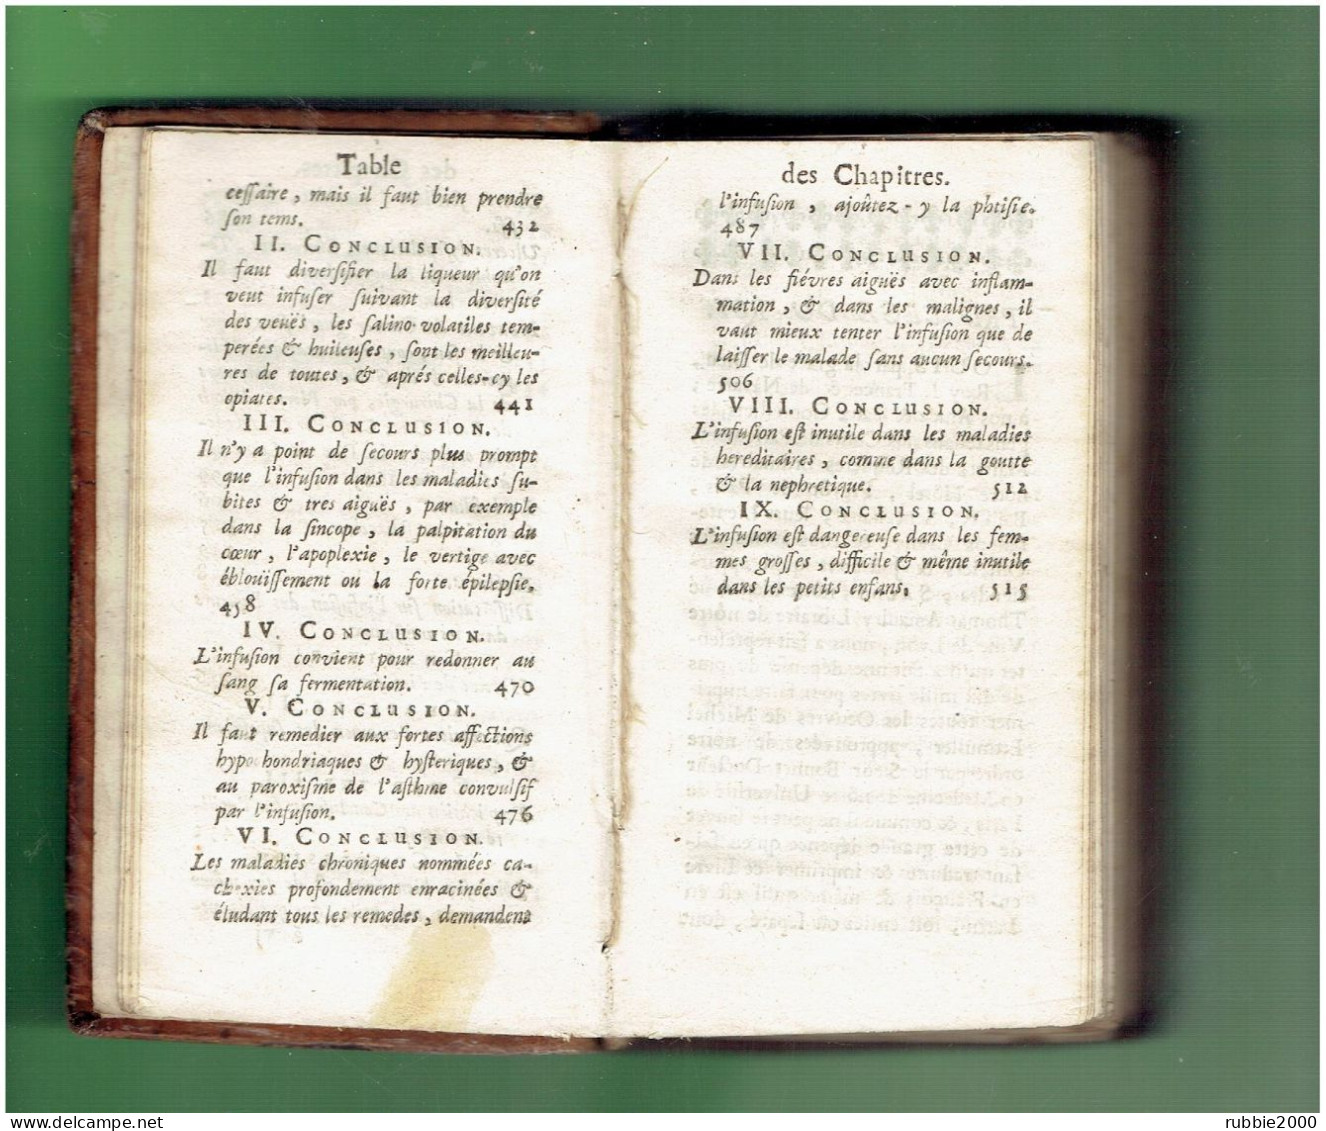 Table
ceſſaire, mais il faut bien prendre
ſon tems. 432
II. CONCLUSION.
Il faut diverſifier la liqueur qu'on
veut infuſer ſuivant la diverſité
des veuës, les ſalino-volatiles tem-
perées & huileuſes, ſont les meilleu-
res de toutes, & aprés celles-cy les
opiates. 441
III. CONCLUSION.
Il n'y a point de ſecours plus prompt
que l'infuſion dans les maladies ſu-
bites & tres aiguës, par exemple
dans la ſincope, la palpitation du
cœur, l'apoplexie, le vertige avec
éblouïſſement ou la forte épilepſie.
458
IV. CONCLUSION.
L'infuſion convient pour redonner au
ſang ſa fermentation. 470
V. CONCLUSION.
Il faut remedier aux fortes affections
hypochondriaques & hyſteriques, &
au paroxiſme de l'aſthme convulſif
par l'infuſion. 476
VI. CONCLUSION.
Les maladies chroniques nommées ca-
chexies profondement enracinées &
éludant tous les remedes, demandent
des Chapitres.
l'infuſion, ajoûtez-y la phtiſie.
487
VII. CONCLUSION.
Dans les fiévres aiguës avec inflam-
mation, & dans les malignes, il
vaut mieux tenter l'infuſion que de
laiſſer le malade ſans aucun ſecours.
506
VIII. CONCLUSION.
L'infuſion eſt inutile dans les maladies
hereditaires, comme dans la goutte
& la nephretique. 512
IX. CONCLUSION.
L'infuſion eſt dangereuſe dans les fem-
mes groſſes, difficile & même inutile
dans les petits enfans. 515
rubbie2000